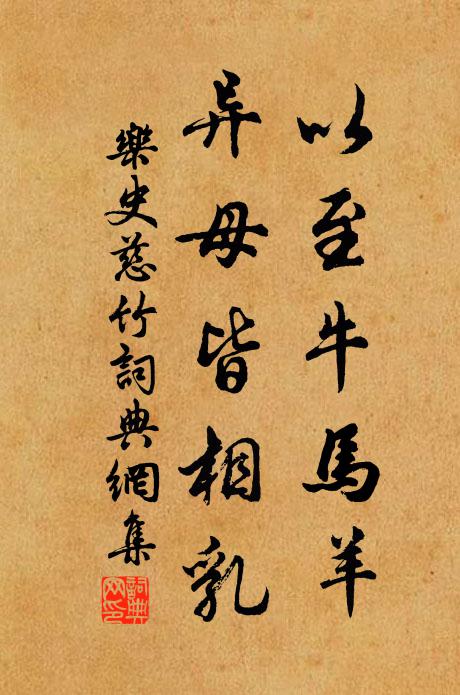 以至牛馬羊
异母皆相乳
樂史慈竹詞典網集
詞典
网印